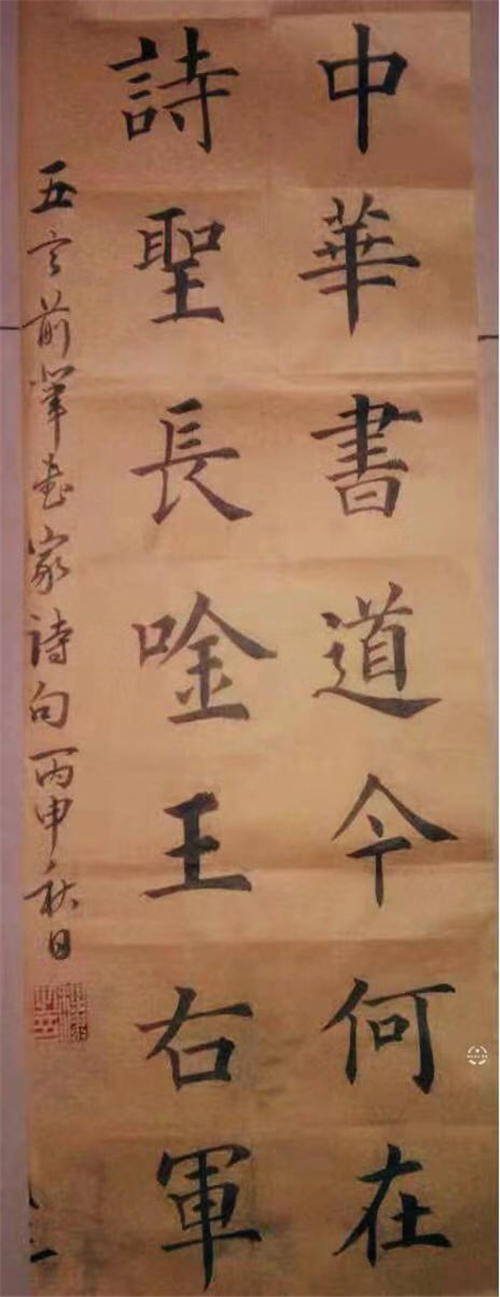 中華書道今何在
詩聖長唫王右軍
五言前輩書家詩句丙申秋日